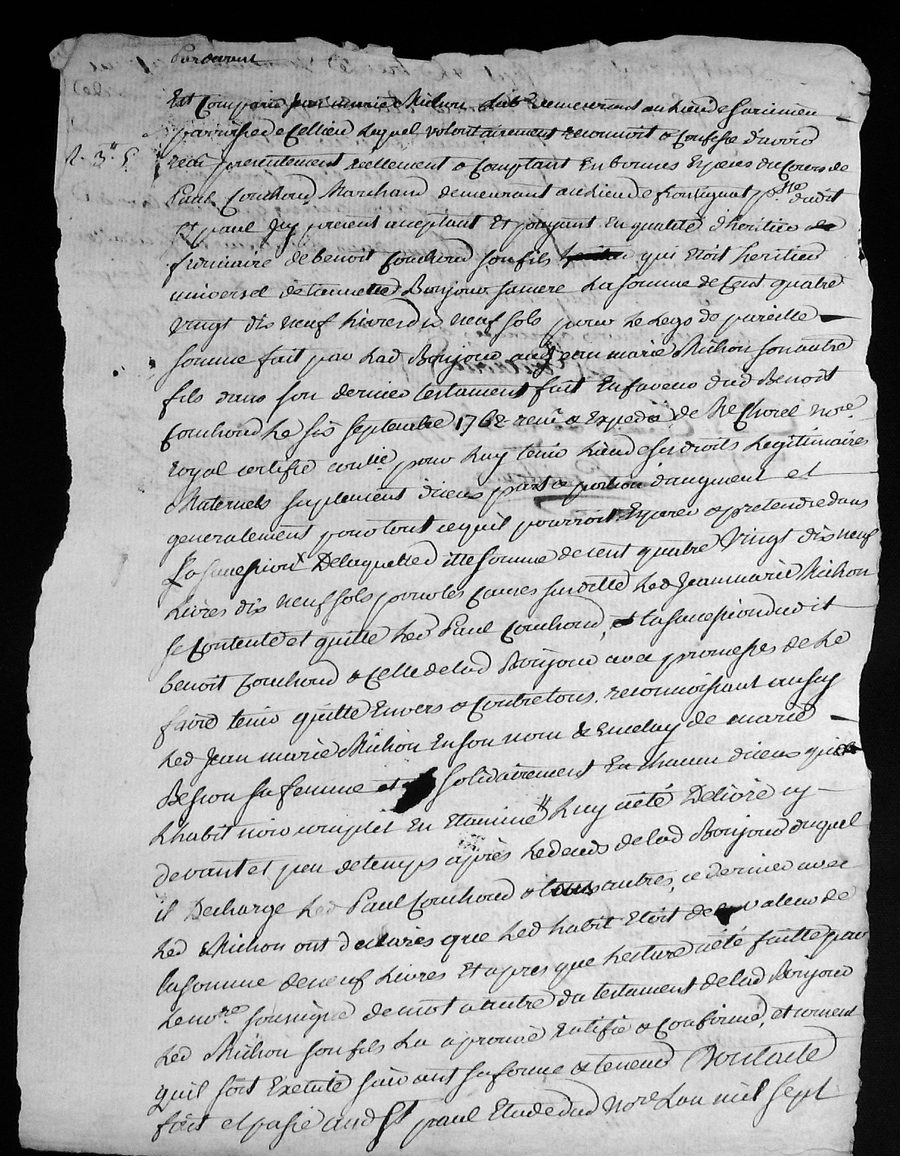 Pardevant
Est Comparu jean marie Richon Lab.r demeurant au Lieu de
parroisse de Cellieu Lequel volontairement reconnoit & Confesse d'avoir
R. 3# 5s.
recu presentement reellement & Comptant En bonnes Especes du Cours de
Paul Couchoud Marchand demeurant au Lieu de fontignat p.sse dudit
St paul Icy present acceptant Et payant En qualité d'heritier
fiduciaire de benoit Couchoud son fils qui etoit heritier
universel d'etiennette Bonjour sa mere La somme de Cent quatre
vingt dix neuf Livres dix neuf sols pour Le Legs de pareille
somme fait par Lad Bonjour aud jean marie Richon son autre
fils dans son dernier testament fait En faveur dud Benoit
Couchoud Le six septembre 1762 recu & Expedié de Me Chorel no.re
royal certifié conlle pour Luy tenir Lieu de ses droits Legitimaires
Maternels suplement d'iceux part & portion d'augment et
generalement pour tout ce qu'il pourroit Esperer & pretendre dans
La succession x De laquelle ditte somme de cent quatre vingt dix neuf
Livres dix neuf sols pour les Causes susditte Led Jean marie Richon
se Contente et quitte Led Paul Couchoud, & la succession dudit
benoit Couchoud & Celle de lad Bonjour avec promesses de Le
faire tenir quitte Envers & Contre tous. reconnoissant aussy
Led Jean marie Richon En son nom & Celuy de marie
Besson sa femme et solidairement En chacun d'iceux qu'un
habit noir complet En Etamine Luy a été Delivré cy
devant et peu de temps après Le deces de lad Bonjour duquel
il Decharge Led Paul Couchoud & tous autres, ce dernier avec
Led Richon ont declarés que Led habit Etoit de valeur de
la somme de neuf Livres Et apres que Lecture a été faitte par
Le no.re soussigné de mot a autre du testament de lad Bonjour
Led Richon son fils La aprouvé Ratifié & Confirmé, et consent
quil soit Executé suivant sa forme & teneur Dont acte
fait et passé aud St paul Etude dud No.re Lan mil sept